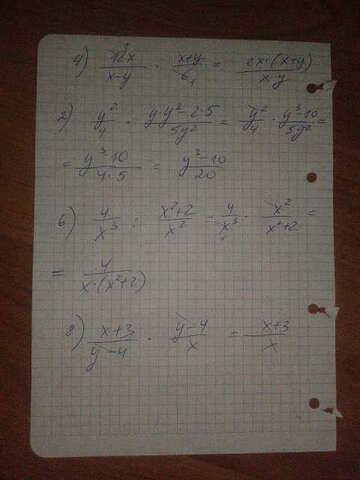 4) 12x/x-y · x+y/6₁ = 2x·(x+y)/x-y
2) y²/4 · y·y²-2·5/5y² = y²/4 · y³-10/5y² =
= y³-10/4·5 = y³-10/20
6) 4/x³ : x²+2/x² = 4/x³ · x²/x²+2 =
= 4/x·(x²+2)
8) x+3/y-4 · y-4/x = x+3/x